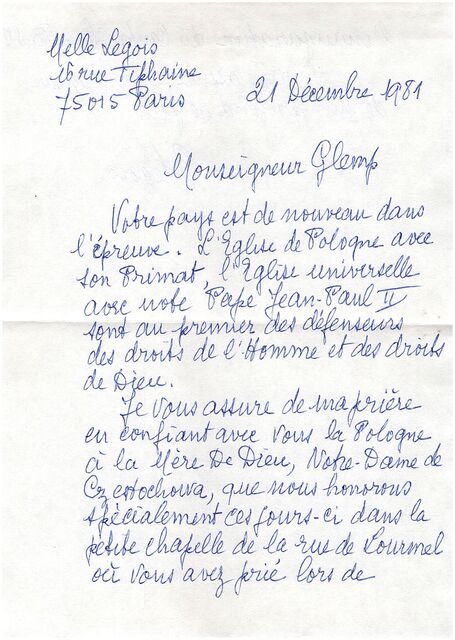 Melle Legois
16 rue Tiphaine
75015 Paris
21 Décembre 1981
Monseigneur Glemp
Votre pays est de nouveau dans
l'épreuve. L'Eglise de Pologne avec
son Primat, l'Eglise universelle
avec notre Pape Jean-Paul II
sont au premier des défenseurs
des droits de l'Homme et des droits
de Dieu.
Je vous assure de ma prière
en confiant avec vous la Pologne
à la Mère De Dieu, Notre-Dame de
Czestochowa, que nous honorons
spécialement ces jours-ci dans la
petite chapelle de la rue de Lourmel
où vous avez prié lors de